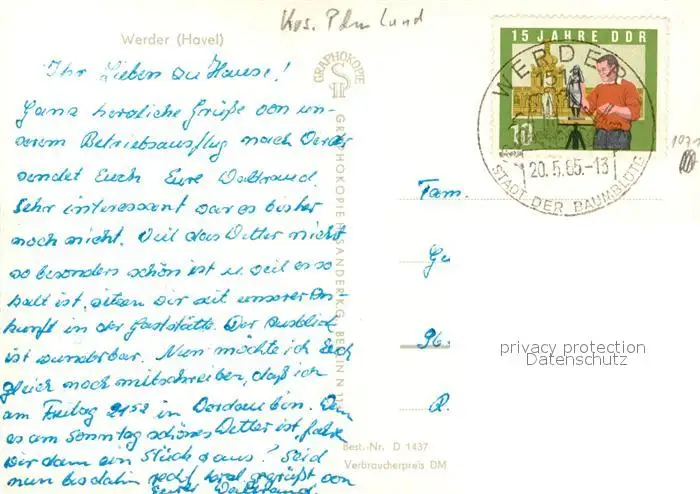 Krs. Pdm Land
Werder (Havel)
Ihr Lieben zu Hause!
Ganz herzliche Grüße von un-
serem Betriebsausflug nach Werder
sendet Euch Eure Waltraud.
Sehr interessant war es bisher
noch nicht. Weil das Wetter nicht
so besonders schön ist u. weil es so
kalt ist, sitzen wir seit unserer An-
kunft in der Gaststätte. Der Ausblick
ist wunderbar. Nun möchte ich Euch
gleich noch mitschreiben, daß ich
am Freitag 21⁵² in bin. Wenn
es am Sonntag schönes Wetter ist, fahren
wir dann ein Stück raus! Seid
nun bis dahin recht herzl. gegrüßt von
Eurer Waltraud
GRAPHOKOPIE
GRAPHOKOPIE H. SANDER KG, BERLIN N 11
15 JAHRE DDR
10
WERDER
1511
20.5.65.-13
STADT DER BAUMBLÜTE
Fam.
Gu
96.
R.
privacy protection
Datenschutz
Best.-Nr. D 1437
Verbraucherpreis DM